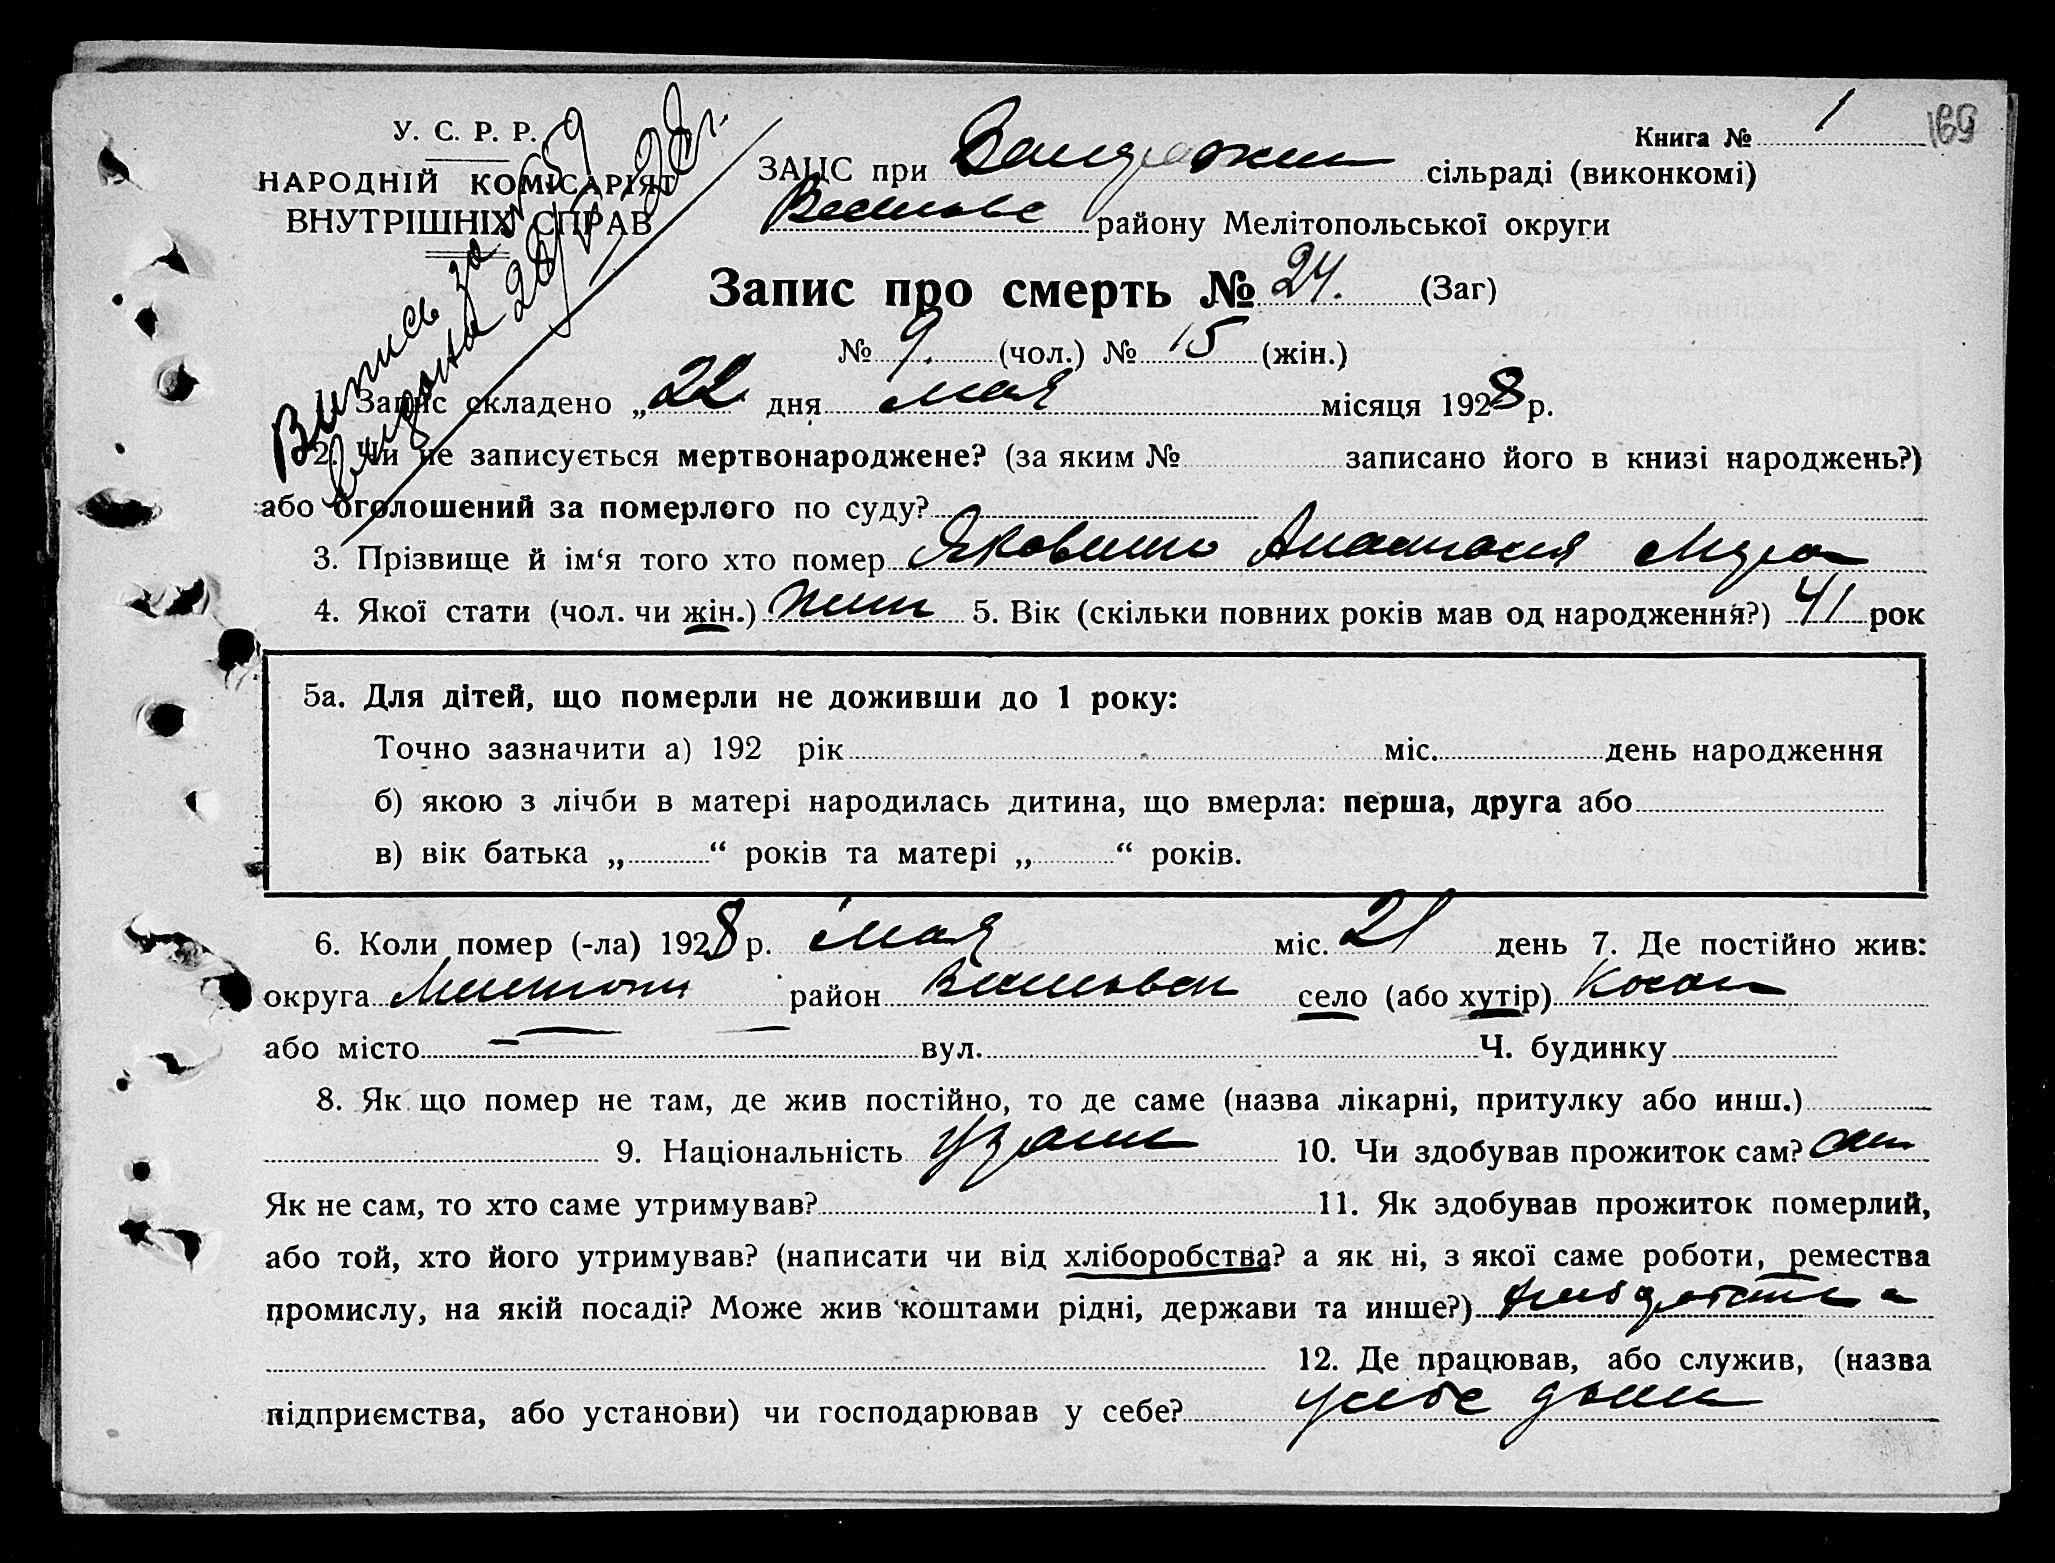 У. С. Р. Р.
НАРОДНІЙ КОМІСАРІЯТ
ВНУТРІШНІХ СПРАВ
Випись за № 59
видана 28/V-28 г.
Книга № 1
169
ЗАЦС при сільраді (виконкомі)
району Мелітопольської округи
Запис про смерть № 24. (Заг)
№ 9. (чол.) № 15 (жін.)
1. Запис складено „22 дня мая місяця 1928 р.
2. Чи не записується мертвонароджене? (за яким № записано його в книзі народжень?)
або оголошений за померлого по суду?
3. Прізвище й ім‘я того хто помер Яковенко Анастасия
4. Якої стати (чол. чи жін.) жен 5. Вік (скільки повних років мав од народження?) 41 рок
5а. Для дітей, що померли не доживши до 1 року:
Точно зазначити а) 192 рік міс. день народження
б) якою з лічби в матері народилась дитина, що вмерла: перша, друга або
в) вік батька „ “ років та матері „ “ років.
6. Коли помер (-ла) 1928 р. мая міс. 21 день 7. Де постійно жив:
округа Мелитоп район село (або хутір)
або місто — вул. Ч. будинку
8. Як що помер не там, де жив постійно, то де саме (назва лікарні, притулку або инш.)
9. Національність 10. Чи здобував прожиток сам? сам
Як не сам, то хто саме утримував? 11. Як здобував прожиток померлий,
або той, хто його утримував? (написати чи від хліборобства? а як ні, з якої саме роботи, ремества
промислу, на якій посаді? Може жив коштами рідні, держави та инше?)
12. Де працював, або служив, (назва
підприємства, або установи) чи господарював у себе? у себе дома